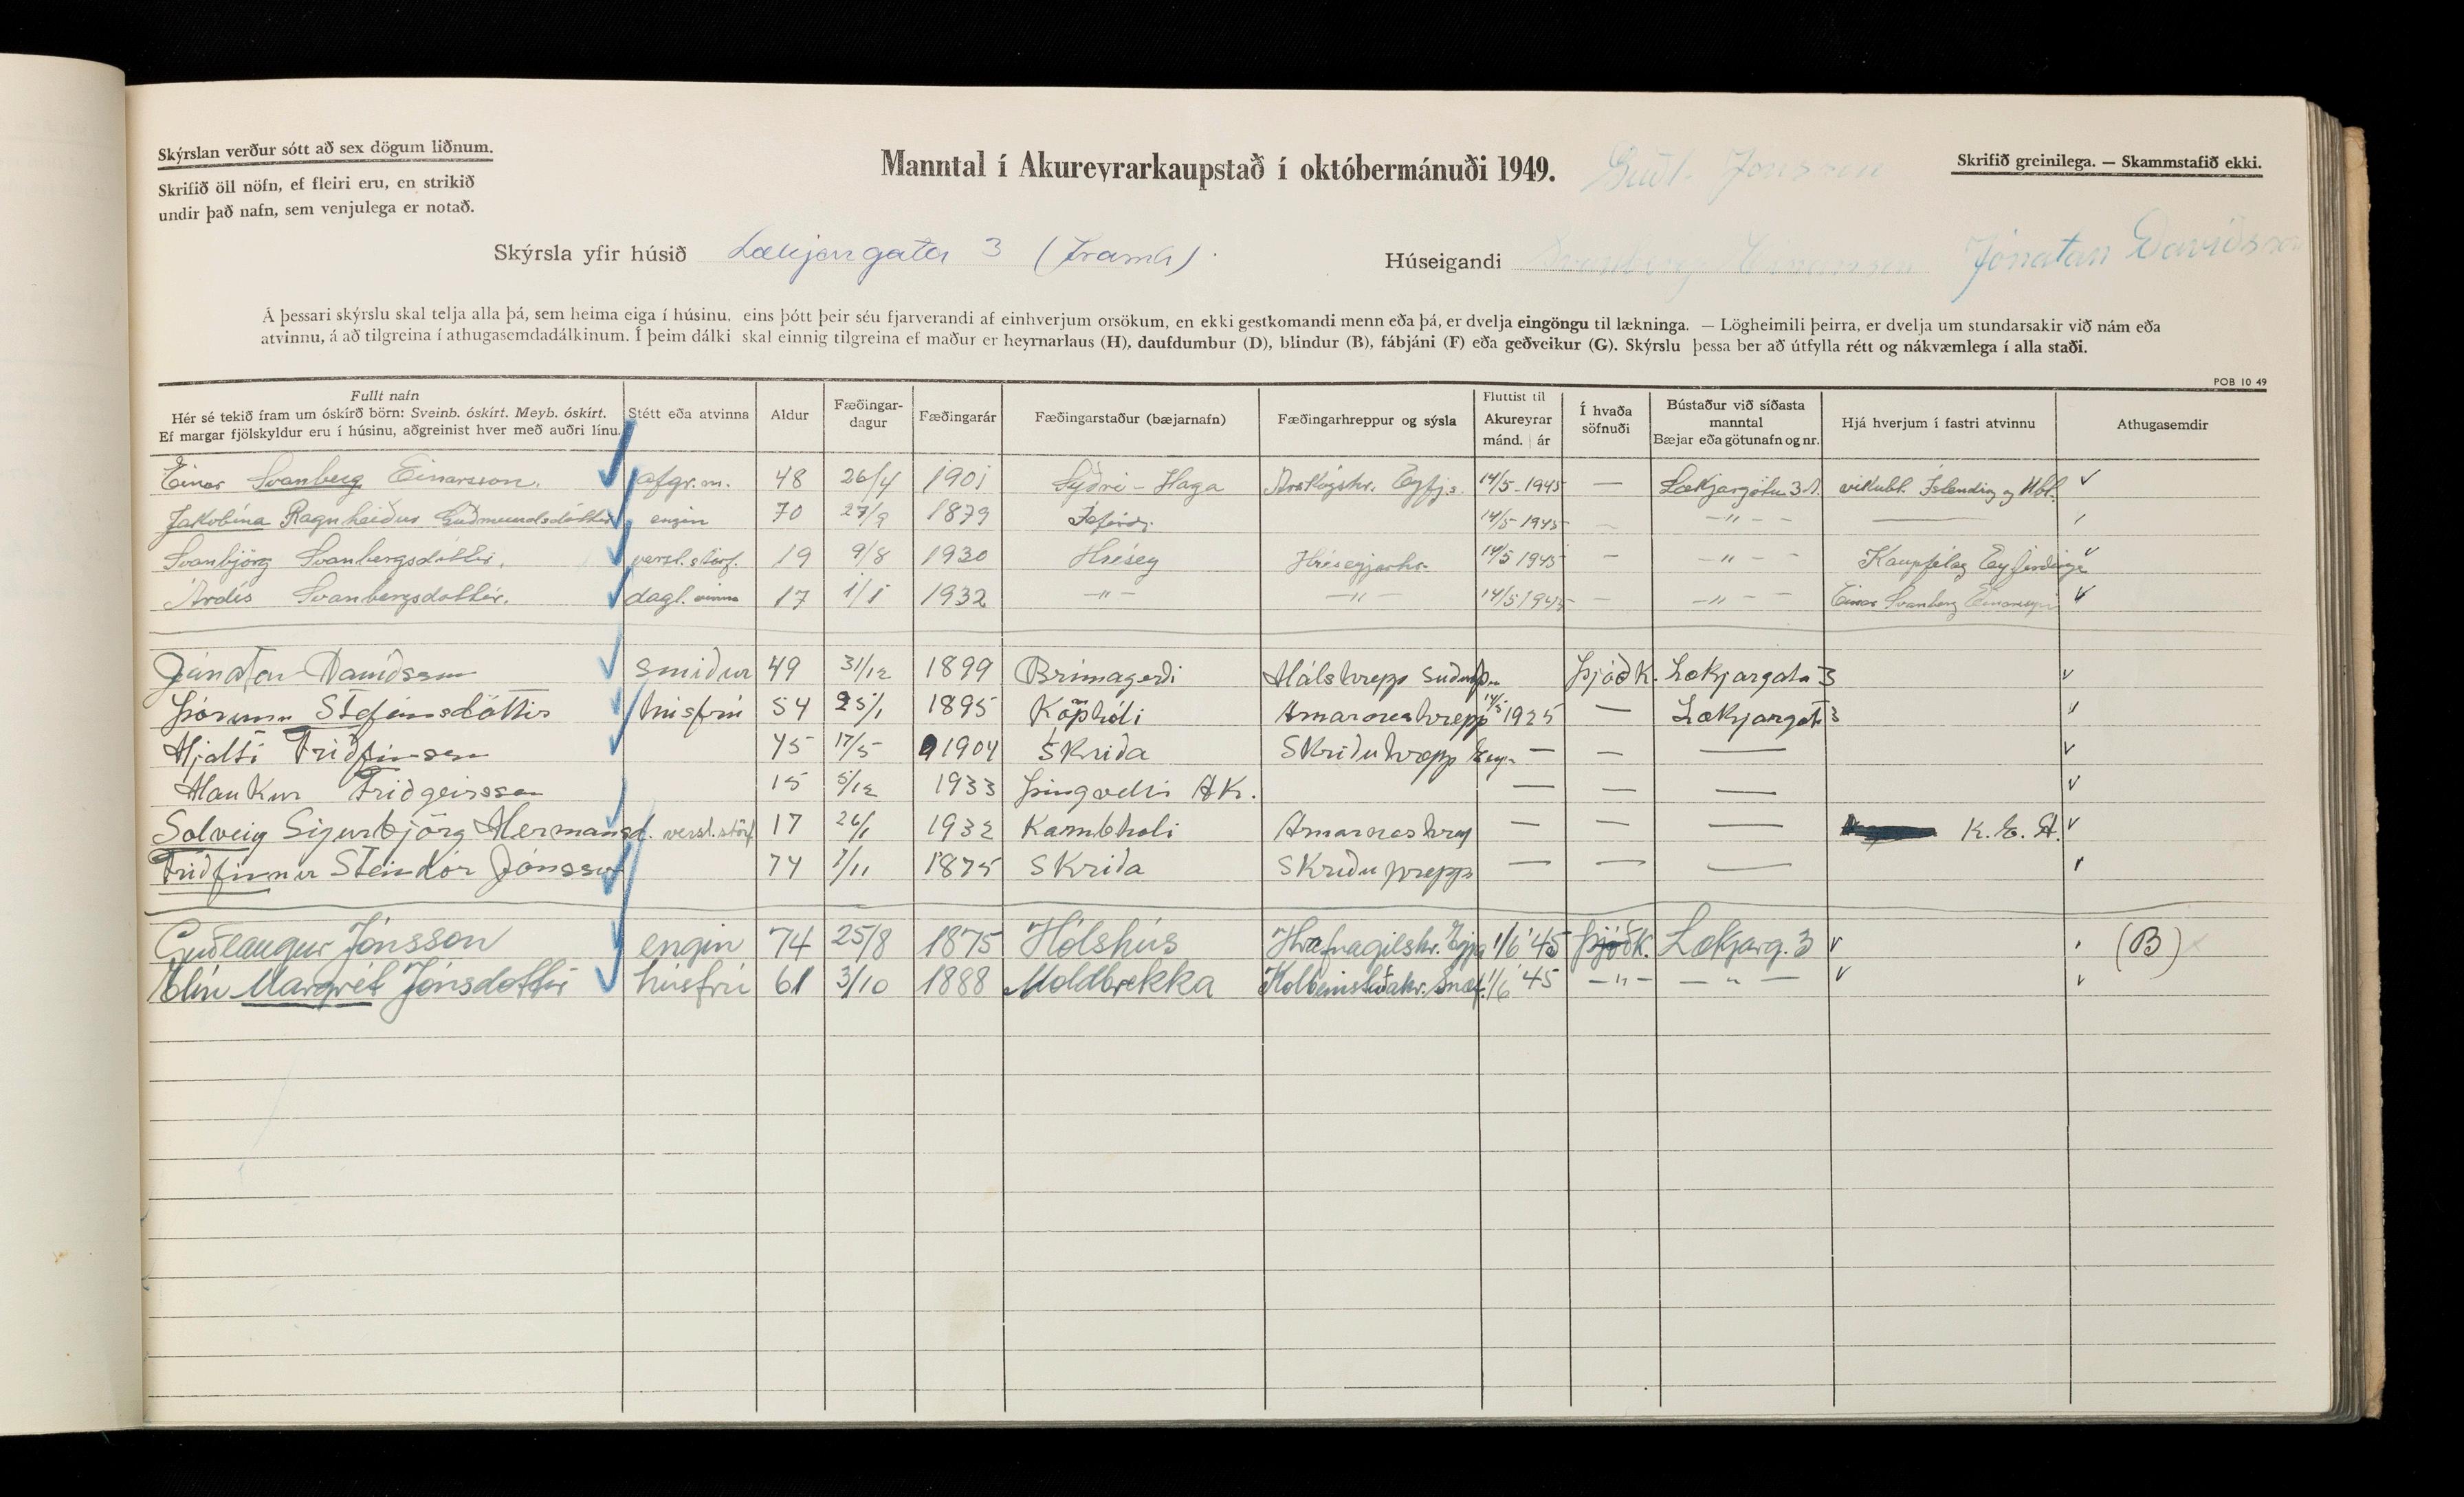 Skýrslan verður sótt að sex dögum liðnum.
Skrifið öll nöfn, ef fleiri eru, en strikið
undir það nafn, sem venjulega er notað.
Manntal í Akureyrarkaupstað í októbermánuði 1949.
Guðl. Jónsson
Skrifið greinilega. — Skammstafið ekki.
Skýrsla yfir húsið Lækjargata 3 (framh)
Húseigandi Jónatan Davíðsson
Á þessari skýrslu skal telja alla þá, sem heima eiga í húsinu, eins þótt þeir séu fjarverandi af einhverjum orsökum, en ekki gestkomandi menn eða þá, er dvelja eingöngu til lækninga. — Lögheimili þeirra, er dvelja um stundarsakir við nám eða
atvinnu, á að tilgreina í athugasemdadálkinum. Í þeim dálki skal einnig tilgreina ef maður er heyrnarlaus (H), daufdumbur (D), blindur (B), fábjáni (F) eða geðveikur (G). Skýrslu þessa ber að útfylla rétt og nákvæmlega í alla staði.
POB 10 49
Fullt nafn
Hér sé tekið fram um óskírð börn: Sveinb. óskírt. Meyb. óskírt.
Ef margar fjölskyldur eru í húsinu, aðgreinist hver með auðri línu.
Stétt eða atvinna
Aldur
Fæðingar-
dagur
Fæðingarár
Fæðingarstaður (bæjarnafn)
Fæðingarhreppur og sýsla
Fluttist til
Akureyrar
mánd. | ár
Í hvaða
söfnuði
Bústaður við síðasta
manntal
Bæjar eða götunafn og nr.
Hjá hverjum í fastri atvinnu
Athugasemdir
Einar Svanberg Einarsson. afgr.m. 48 26/4 1901 Syðri-Haga Árskógshr. Eyfj.s. 14/5-1945 — Lækjargötu 3 vikubl. Íslending og Mbl. v
Jakobína Ragnheiður Guðmundsdóttir engin 70 27/9 1879 Ísafirði 14/5 1945 — -"- —
Svanbjörg Svanbergsdóttir, verzl.störf. 19 9/8 1930 Hrísey Hríseyjarhr. 14/5 1945 — -"- Kaupfélag Eyfirðinga v
Árdís Svanbergsdóttir. dagl. vinna 17 1/1 1932 -"- -"- 14/5 1945 — -"- Einar Svanberg Einarssyni v
Jónatan Davíðsson smiður 49 31/12 1899 Brúnagerði Hálshrepp Suðurþ. Þjóðk. Lækjargata 3 v
Þórunn Stefánsdóttir húsfrú 54 25/1 1895 Kóphóli Arnarneshrepp 14/5 1925 — Lækjargat 3
Hjalti Friðfinsson 45 17/5 1904 Skriða Skriðuhrepp Ey. — — — v
Haukur Friðgeirsson 15 5/12 1933 Þingvelli AK. — — — v
Solveig Sigurbjörg Hermannsd. verzl.störf 17 26/1 1932 Kambhóli Arnarneshrep — — — K.E.A. v
Friðfinnur Steindór Jónsson 74 7/11 1875 Skriða Skriðuhrepp — — —
Guðlaugur Jónsson engin 74 25/8 1875 Hólshús Hrafnagilshr. Eyja 1/6 '45 Þjóðk. Lækjarg. 3 v (B)
Elín Margrét Jónsdóttir húsfrú 61 3/10 1888 Moldbrekka Kolbeinstaðahr. Snæf. 1/6 '45 -"- -"- v v